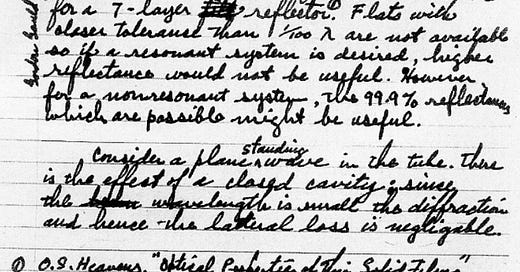 for a 7-layer reflector. ① Flats with
closer tolerance than 1/100 λ are not available
so if a resonant system is desired, higher
reflectance would not be useful. However
for a nonresonant system, the 99.9% reflectances
which are possible might be useful.
Consider a plane standing wave in the tube. There
is the effect of a closed cavity; since
the wavelength is small the diffraction
and hence the lateral loss is negligable.
① O.S. Heavens, "Optical Properties of Thin Solid Films"